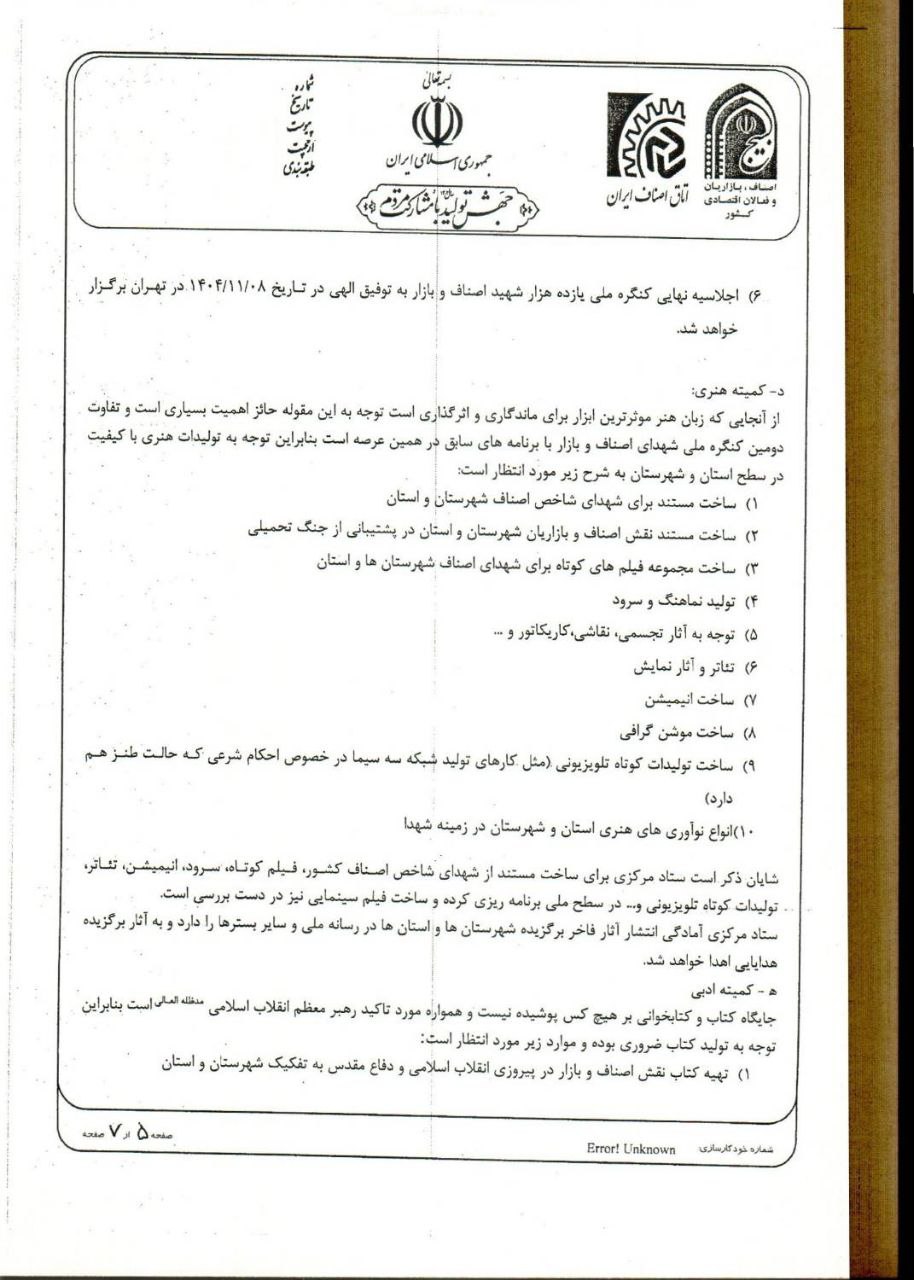 بسمه تعالی
جمهوری اسلامی ایران
جهش تولید با مشارکت مردم
شماره
تاریخ
پیوست
ارجحیت
طبقه‌بندی
اتاق اصناف ایران
بسیج
اصناف، بازاریان
و فعالان اقتصادی
کشور
۶) اجلاسیه نهایی کنگره ملی یازده هزار شهید اصناف و بازار به توفیق الهی در تاریخ ۱۴۰۴/۱۱/۰۸ در تهران برگزار
خواهد شد.
د- کمیته هنری:
از آنجایی که زبان هنر موثرترین ابزار برای ماندگاری و اثرگذاری است توجه به این مقوله حائز اهمیت بسیاری است و تفاوت
دومین کنگره ملی شهدای اصناف و بازار با برنامه های سابق در همین عرصه است بنابراین توجه به تولیدات هنری با کیفیت
در سطح استان و شهرستان به شرح زیر مورد انتظار است:
۱) ساخت مستند برای شهدای شاخص اصناف شهرستان و استان
۲) ساخت مستند نقش اصناف و بازاریان شهرستان و استان در پشتیبانی از جنگ تحمیلی
۳) ساخت مجموعه فیلم های کوتاه برای شهدای اصناف شهرستان ها و استان
۴) تولید نماهنگ و سرود
۵) توجه به آثار تجسمی، نقاشی،کاریکاتور و ...
۶) تئاتر و آثار نمایش
۷) ساخت انیمیشن
۸) ساخت موشن گرافی
۹) ساخت تولیدات کوتاه تلویزیونی (مثل کارهای تولید شبکه سه سیما در خصوص احکام شرعی که حالت طنز هم
دارد)
۱۰)انواع نوآوری های هنری استان و شهرستان در زمینه شهدا
شایان ذکر است ستاد مرکزی برای ساخت مستند از شهدای شاخص اصناف کشور، فیلم کوتاه، سرود، انیمیشن، تئاتر،
تولیدات کوتاه تلویزیونی و... در سطح ملی برنامه ریزی کرده و ساخت فیلم سینمایی نیز در دست بررسی است.
ستاد مرکزی آمادگی انتشار آثار فاخر برگزیده شهرستان ها و استان ها در رسانه ملی و سایر بسترها را دارد و به آثار برگزیده
هدایایی اهدا خواهد شد.
ه - کمیته ادبی
جایگاه کتاب و کتابخوانی بر هیچ کس پوشیده نیست و همواره مورد تاکید رهبر معظم انقلاب اسلامی مدظله العالی است بنابراین
توجه به تولید کتاب ضروری بوده و موارد زیر مورد انتظار است:
۱) تهیه کتاب نقش اصناف و بازار در پیروزی انقلاب اسلامی و دفاع مقدس به تفکیک شهرستان و استان
شماره خودکارسازی: Error! Unknown
صفحه ۵ از ۷ صفحه